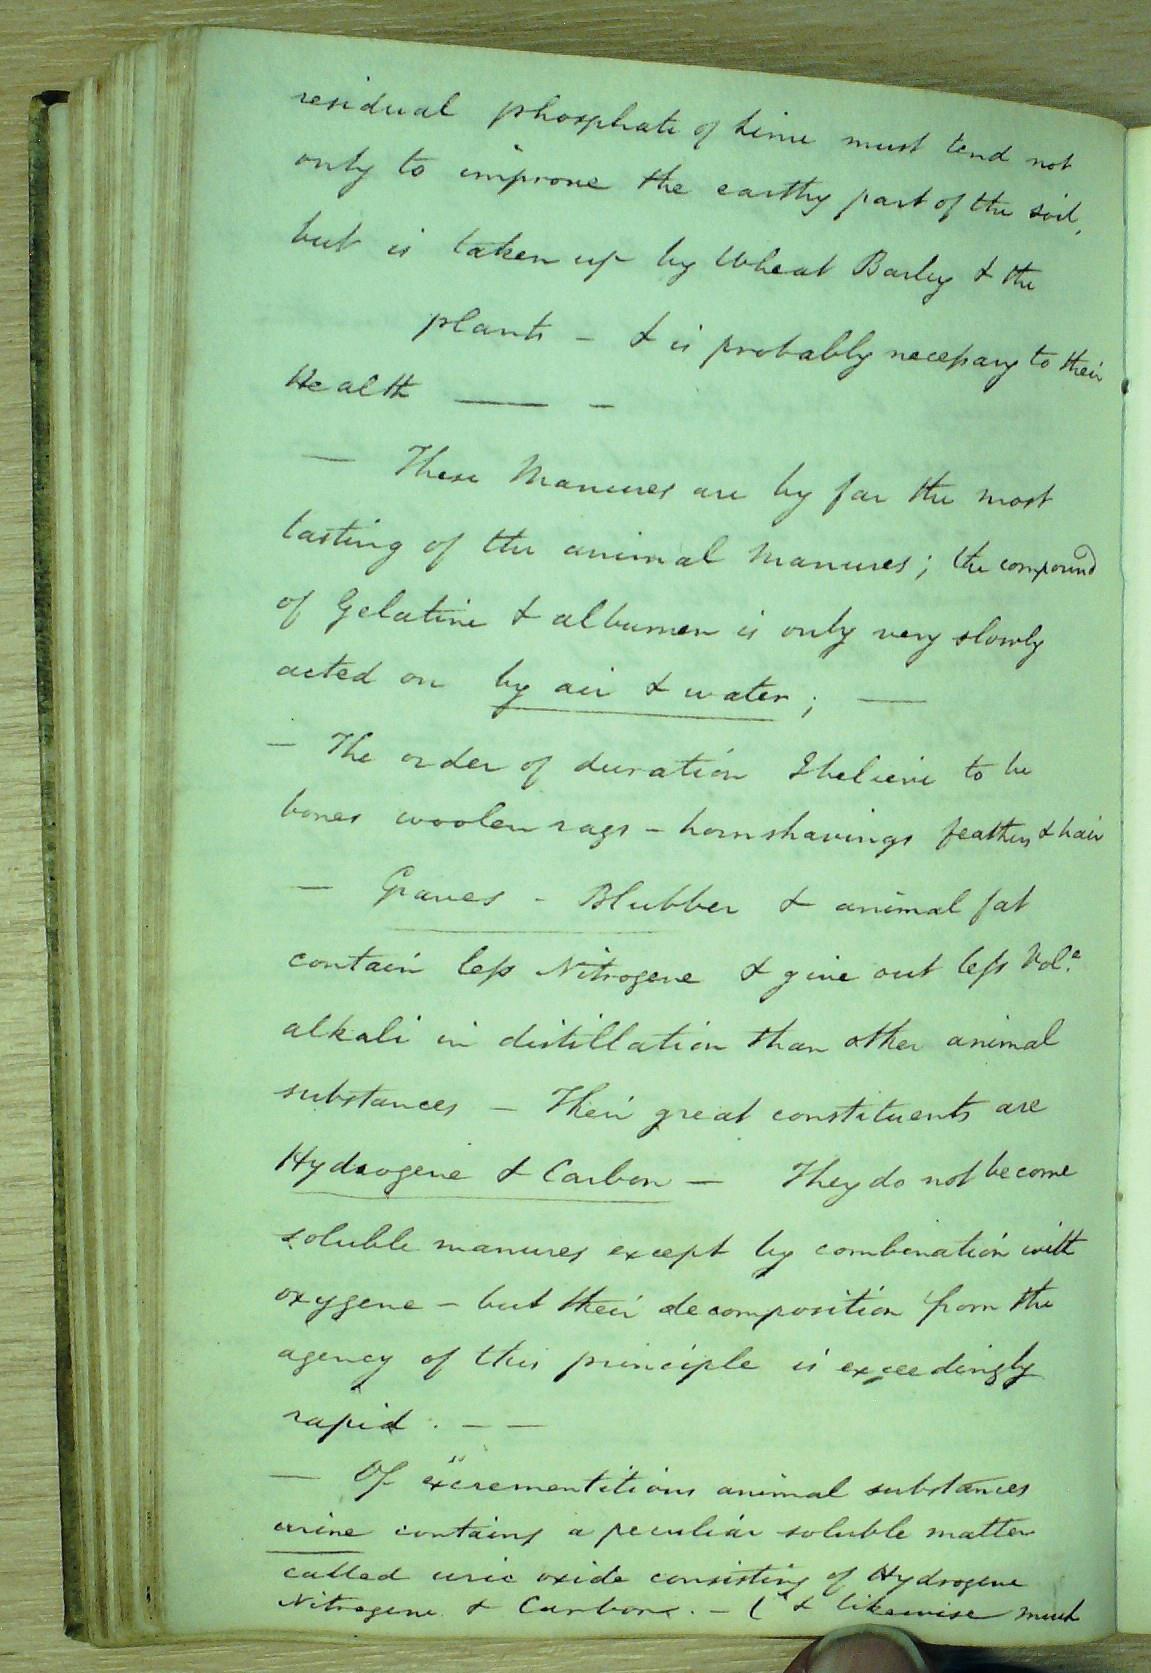 residual phosphate of Lime must tend not
only to improve the earthy part of the soil,
but is taken up by Wheat Barley & the
plants - & is probably necessary to their
Health —— -
— These Manures are by far the most
lasting of the animal Manures; the compound
of Gelatine & albumen is only very slowly
acted on by air & water; —
— The order of duration I believe to be
bones woolen rags - horn shavings feathers & hair
— Graves - Blubber & animal fat
contain less Nitrogene & give out less Vol.e
alkali in distillation than other animal
substances — Their great constituents are
Hydrogene & Carbon — They do not become
soluble manures except by combination with
oxygene - but their decomposition from the
agency of this principle is exceedingly
rapid. — —
— Of excrementitious animal substances
urine contains a peculiar soluble matter
called uric oxide consisting of Hydrogene
Nitrogene & Carbone. - ( & likewise much